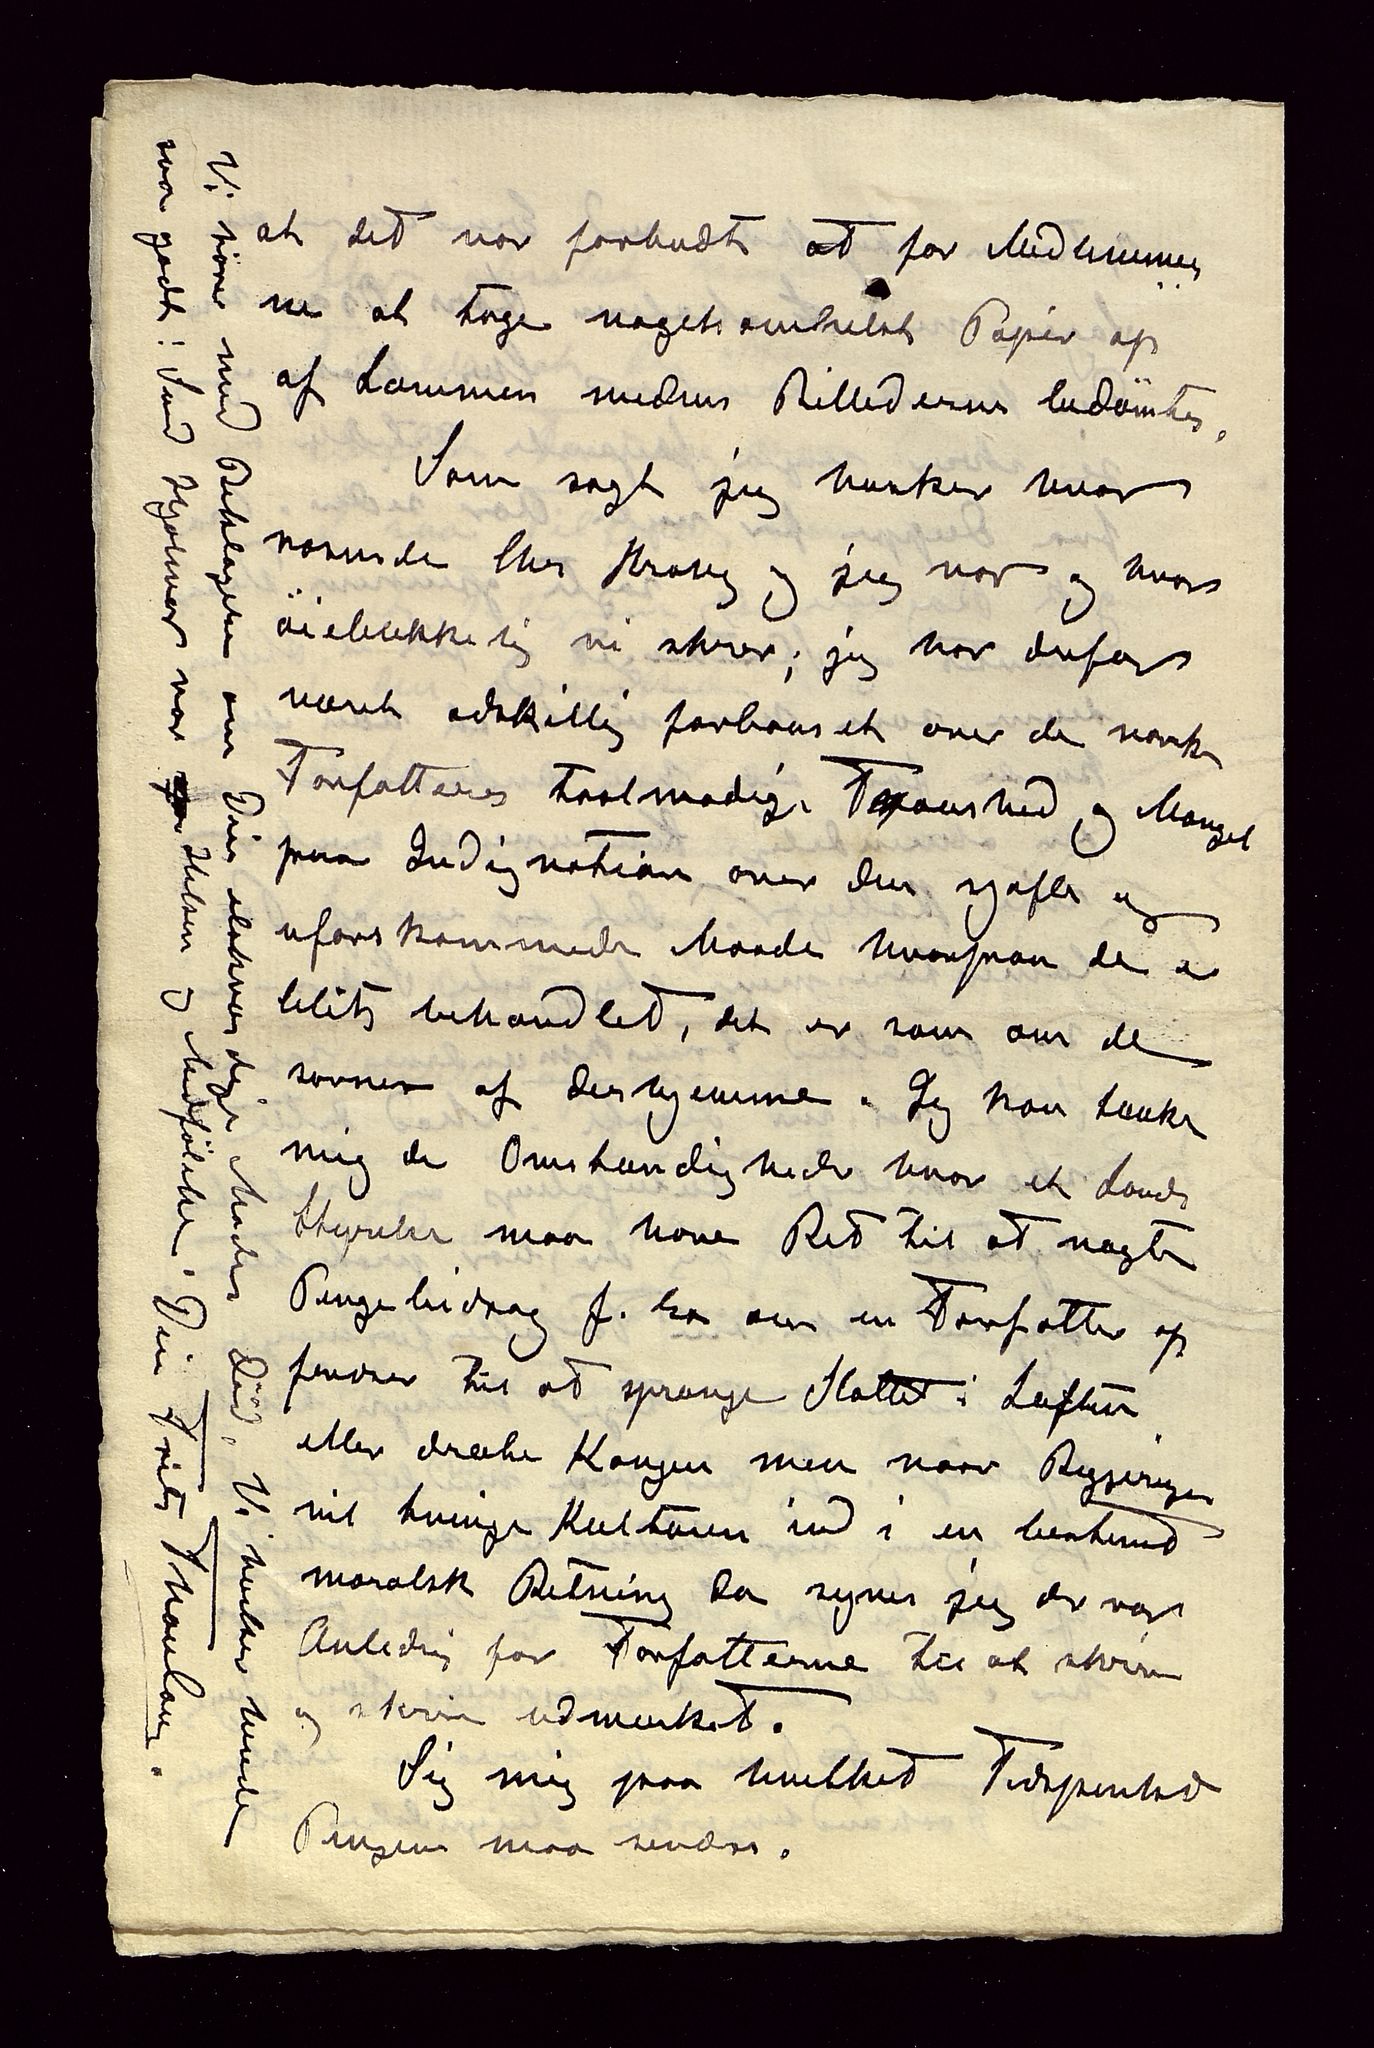 at det var forbudt at for Medlemmer
ne at tage nogetsomhelst Papir op
af Lommen medens Billederne bedömtes.
Som sagt jeg husker hvor
rasende Chr Krohg og jeg var og hvor
öieblikkelig vi skrev; jeg har derfor
været adskillig forbauset over de norske
Forfatteres taalmodige Taushed og Mangel
paa Indignation over den sjofle og
uforskammede Maade hvorpaa de er
blit behandlet, det er som om de
sovner af derhjemme. Jeg kan tænke
mig de Omstændigheder hvor et Lands
Styrelse maa have Ret til at nægte
Pengebidrag f. Ex om en Forfatter op
fordrer til at sprænge Slottet i Luften
eller dræbe Kongen men naar Regjeringen
vil tvinge Kulturen ind i en bestemt
moralsk Retning da synes jeg der var
Anledning for Forfatterne til at skrive
og skrive udmærket.
Sig mig paa hvilket Tidspunkt
Pengene maa sendes.
Vi hörer med Beklagelse om Din elskværdige Moders Död. Vi husker hende
saa godt! Send Hjalmar vor Hilsen og Medfölelse. Din Frits Thaulow.